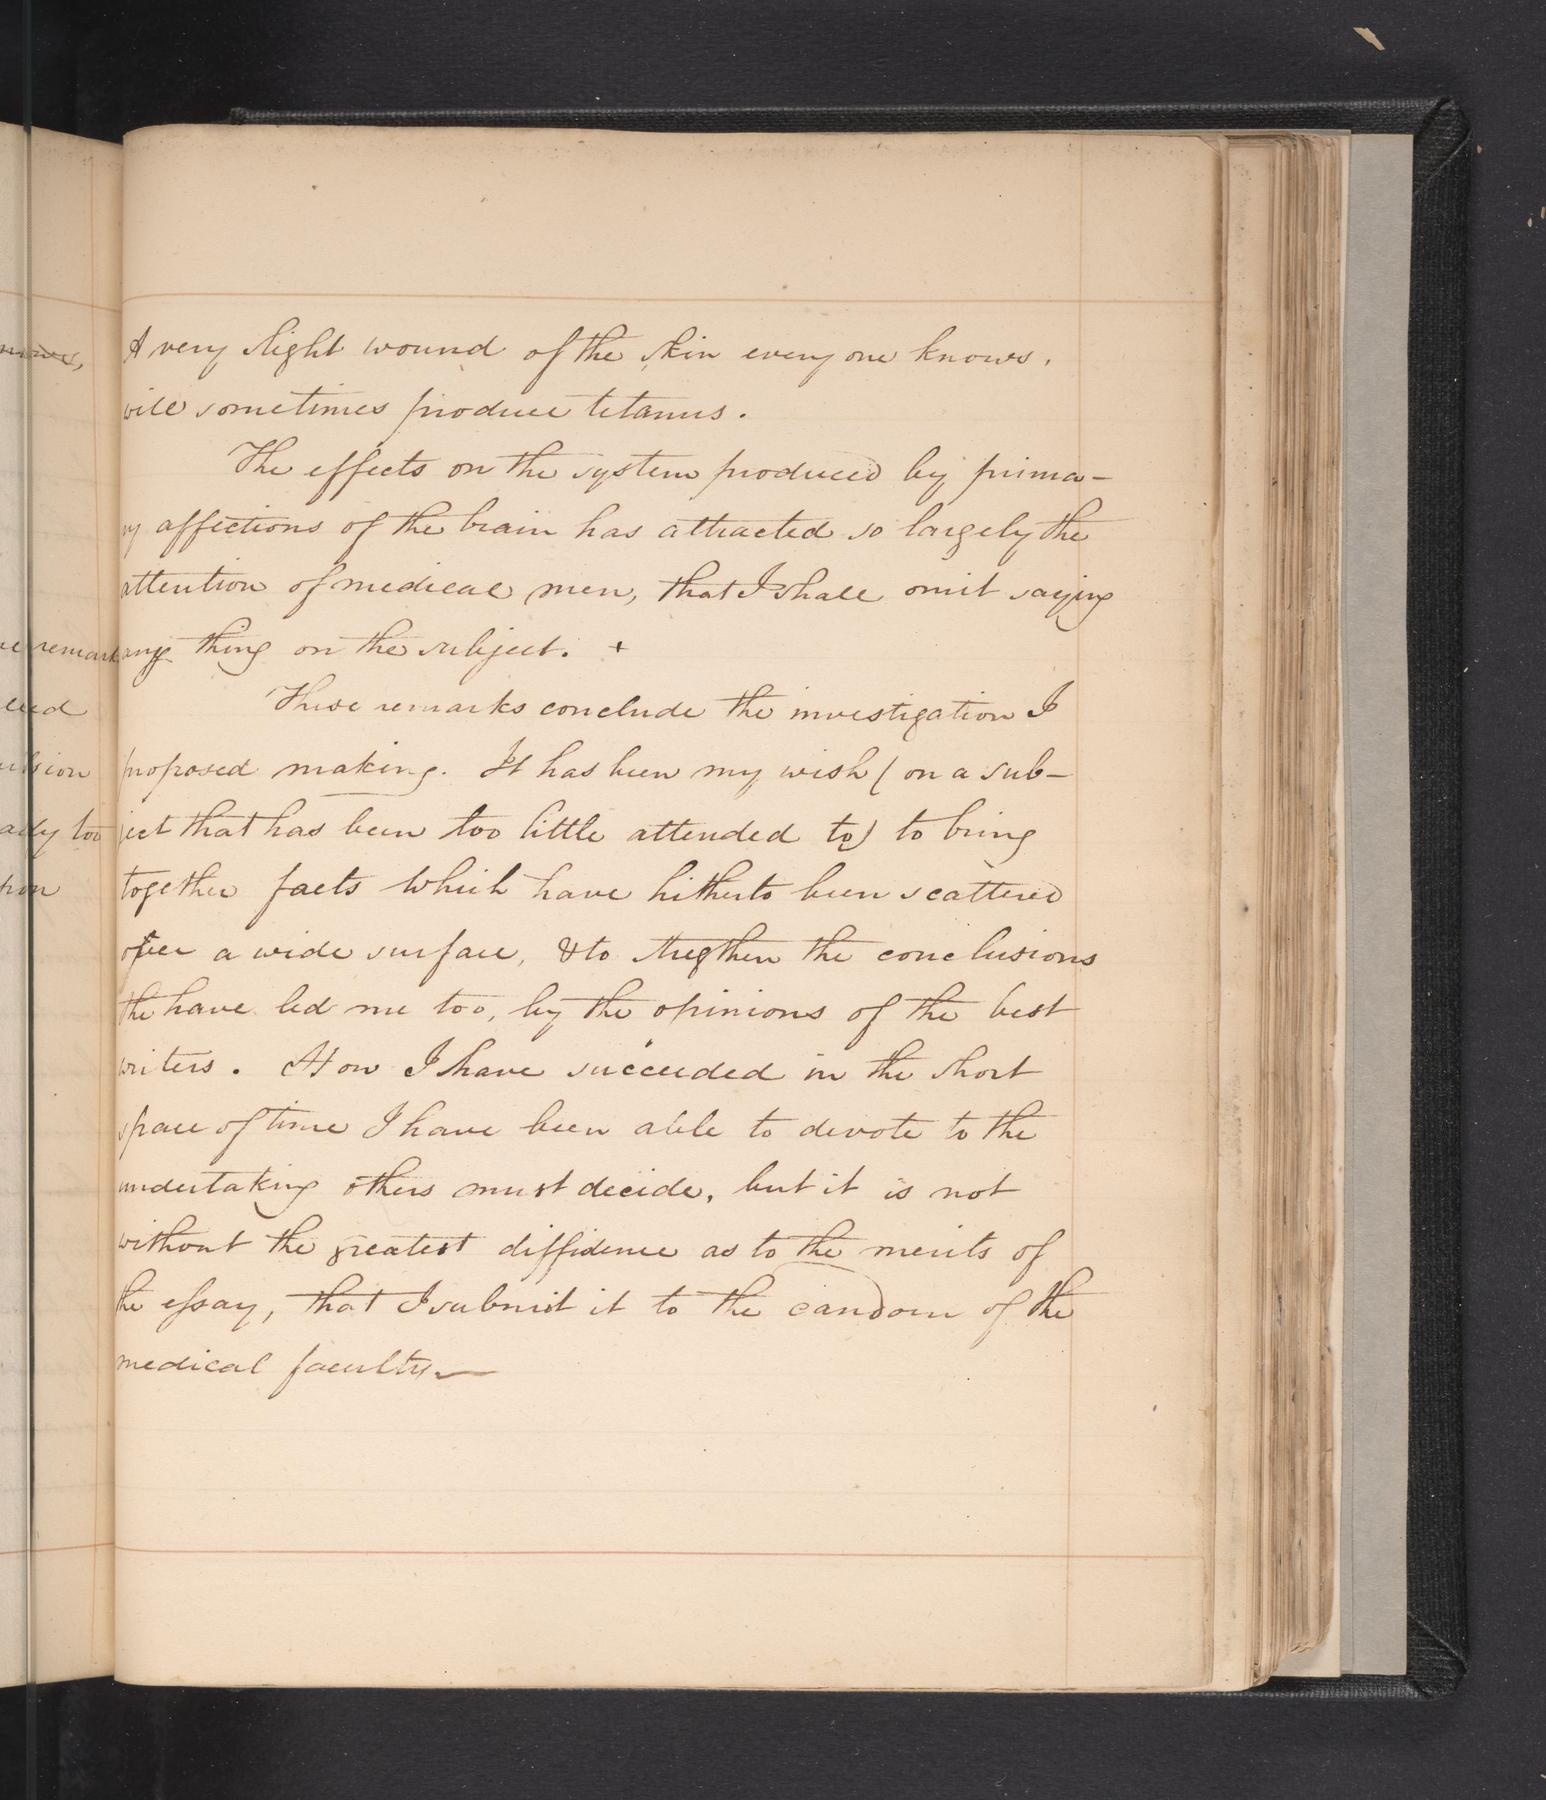 A very slight wound of the skin every one knows,
will sometimes produce tetanus.
The effects on the system produced by prima-
ry affections of the brain has attracted so largely the
attention of medical men, that I shall omit saying
any thing on the subject. +
These remarks conclude the investigation I
proposed making. It has been my wish (on a sub-
ject that has been too little attended to) to bring
together facts which have hitherto been scattered
over a wide surface, & to stregthen the conclusions
the have led me too, by the opinions of the best
writers. How I have succeeded in the short
space of time I have been able to devote to the
undertaking others must decide, but it is not
without the greatest diffidence as to the merits of
the essay, that I submit it to the candour of the
medical faculty—